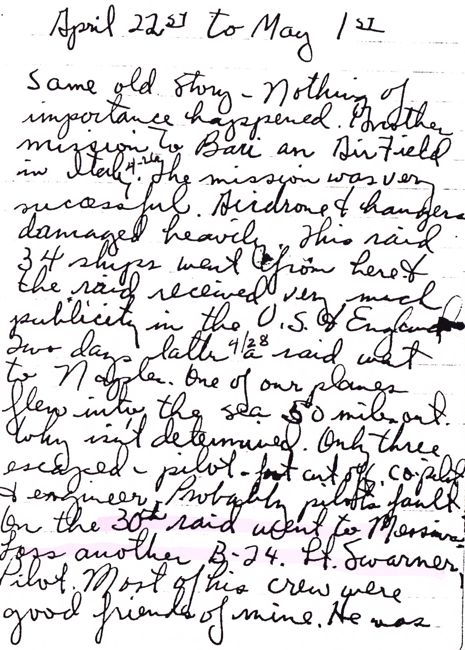 April 22ST to May 1ST
Same old story - Nothing of
importance happened. Another
mission to Bari an AirField
in Italy 4-26. The mission was very
sucessful. Airdrone & hangers
damaged heavily. This raid
34 ships went from here &
the raid received very much
publicity in the U.S. & England
Two days latter 4/28 a raid went
to Naples. One of our planes
flew into the sea 50 mile out.
Why isn't determined. Only three
escaped - pilot - foot cut off, co-pilot
& engineer. Probably pilots fault
On the 30th raid went to Messina
Loss another B-24. Lt. Swarner,
Pilot. Most of his crew were
good friends of mine. He was